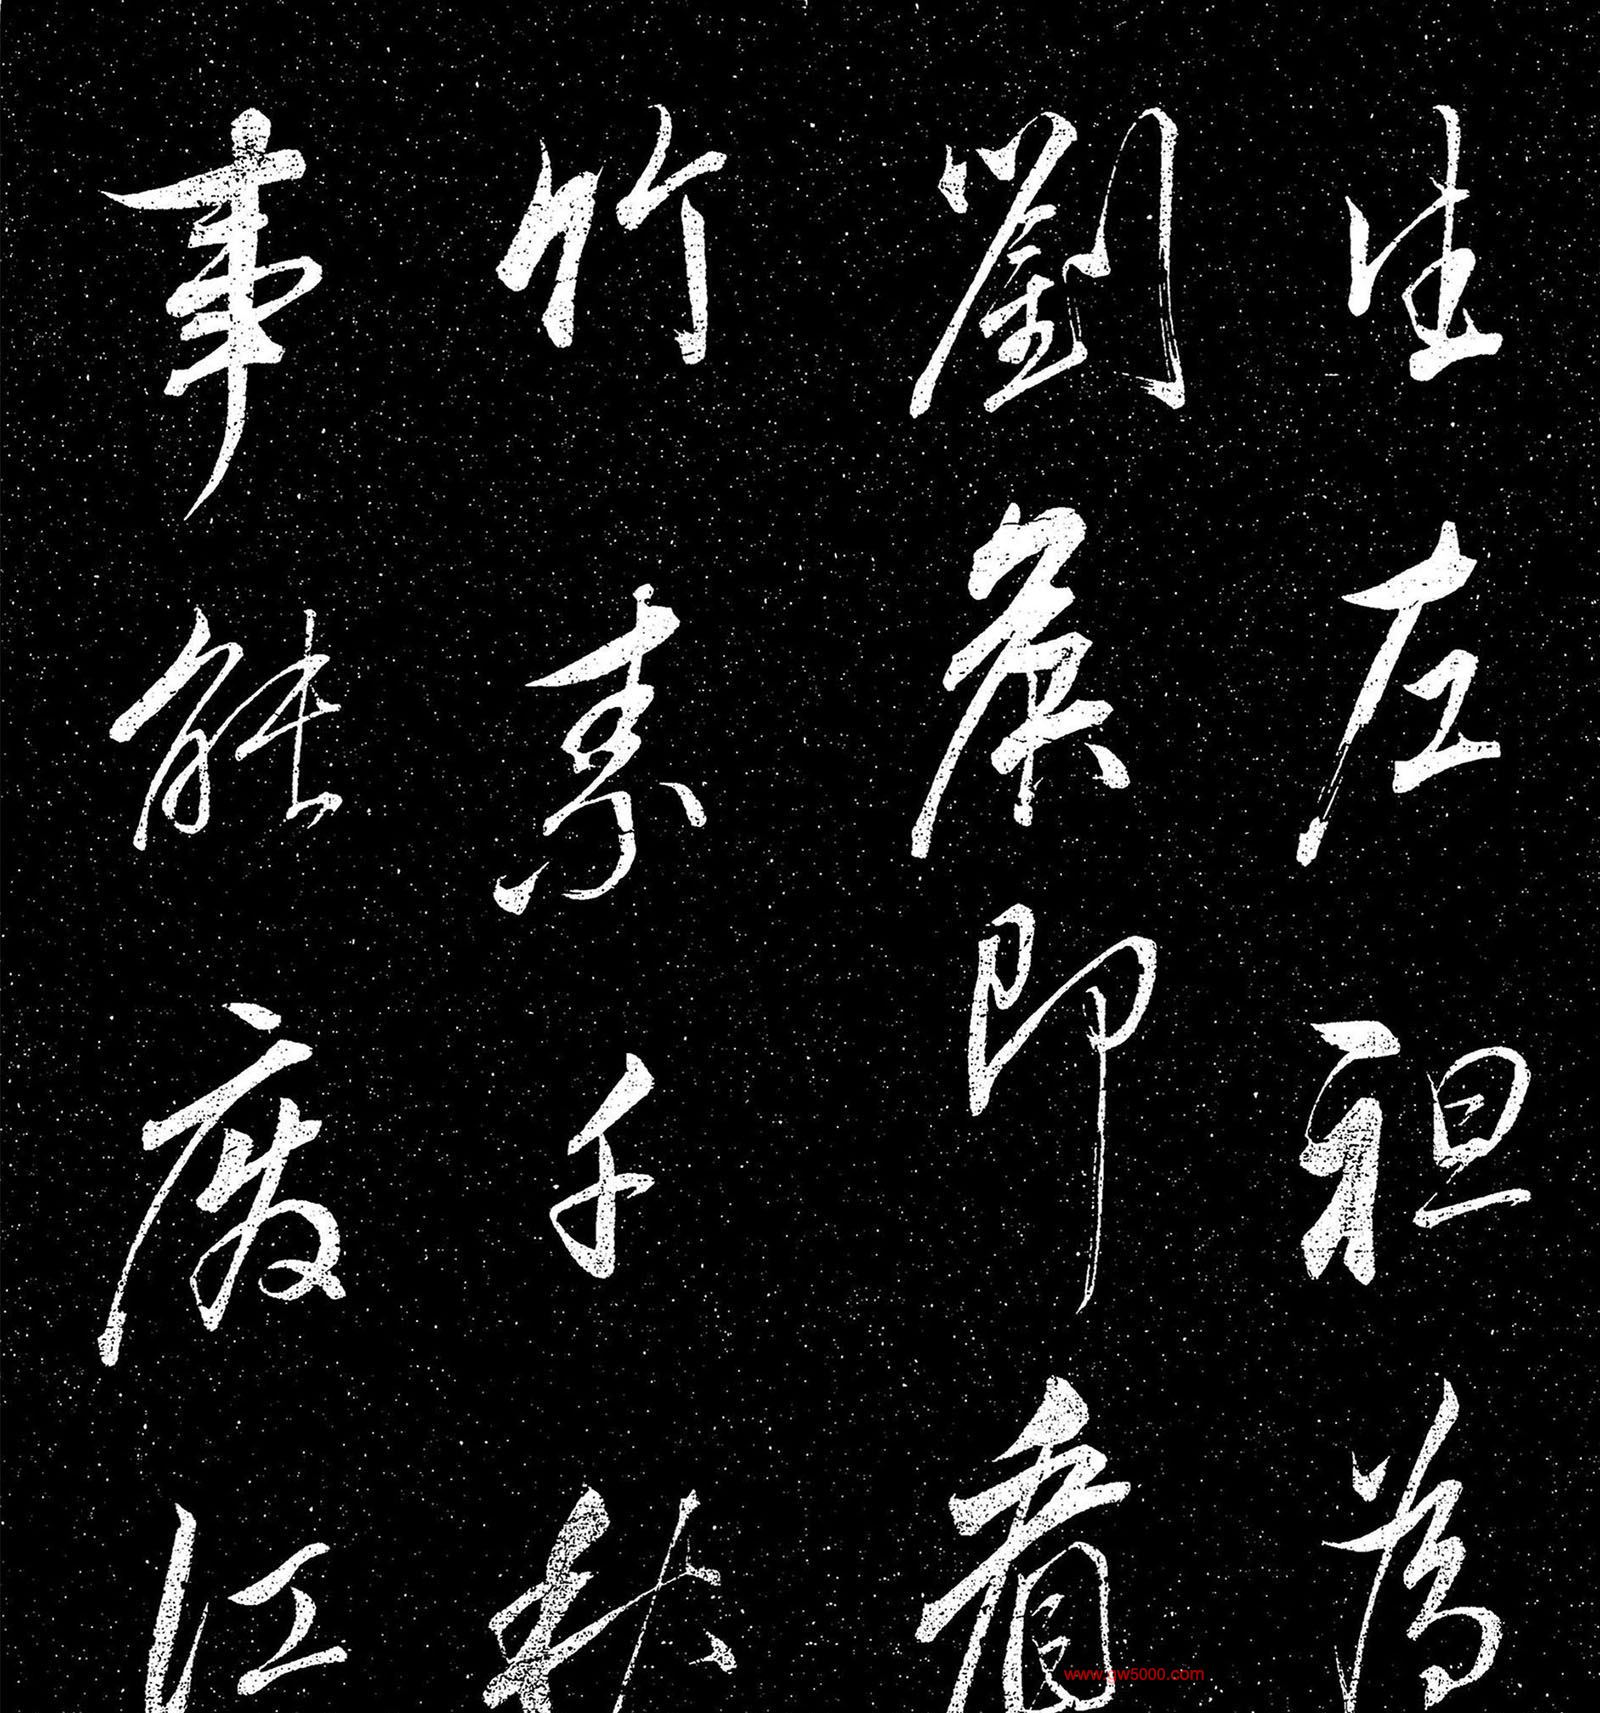 生左袒為
劉侯即看
竹素千秋
事能廢江
www.gw5000.com